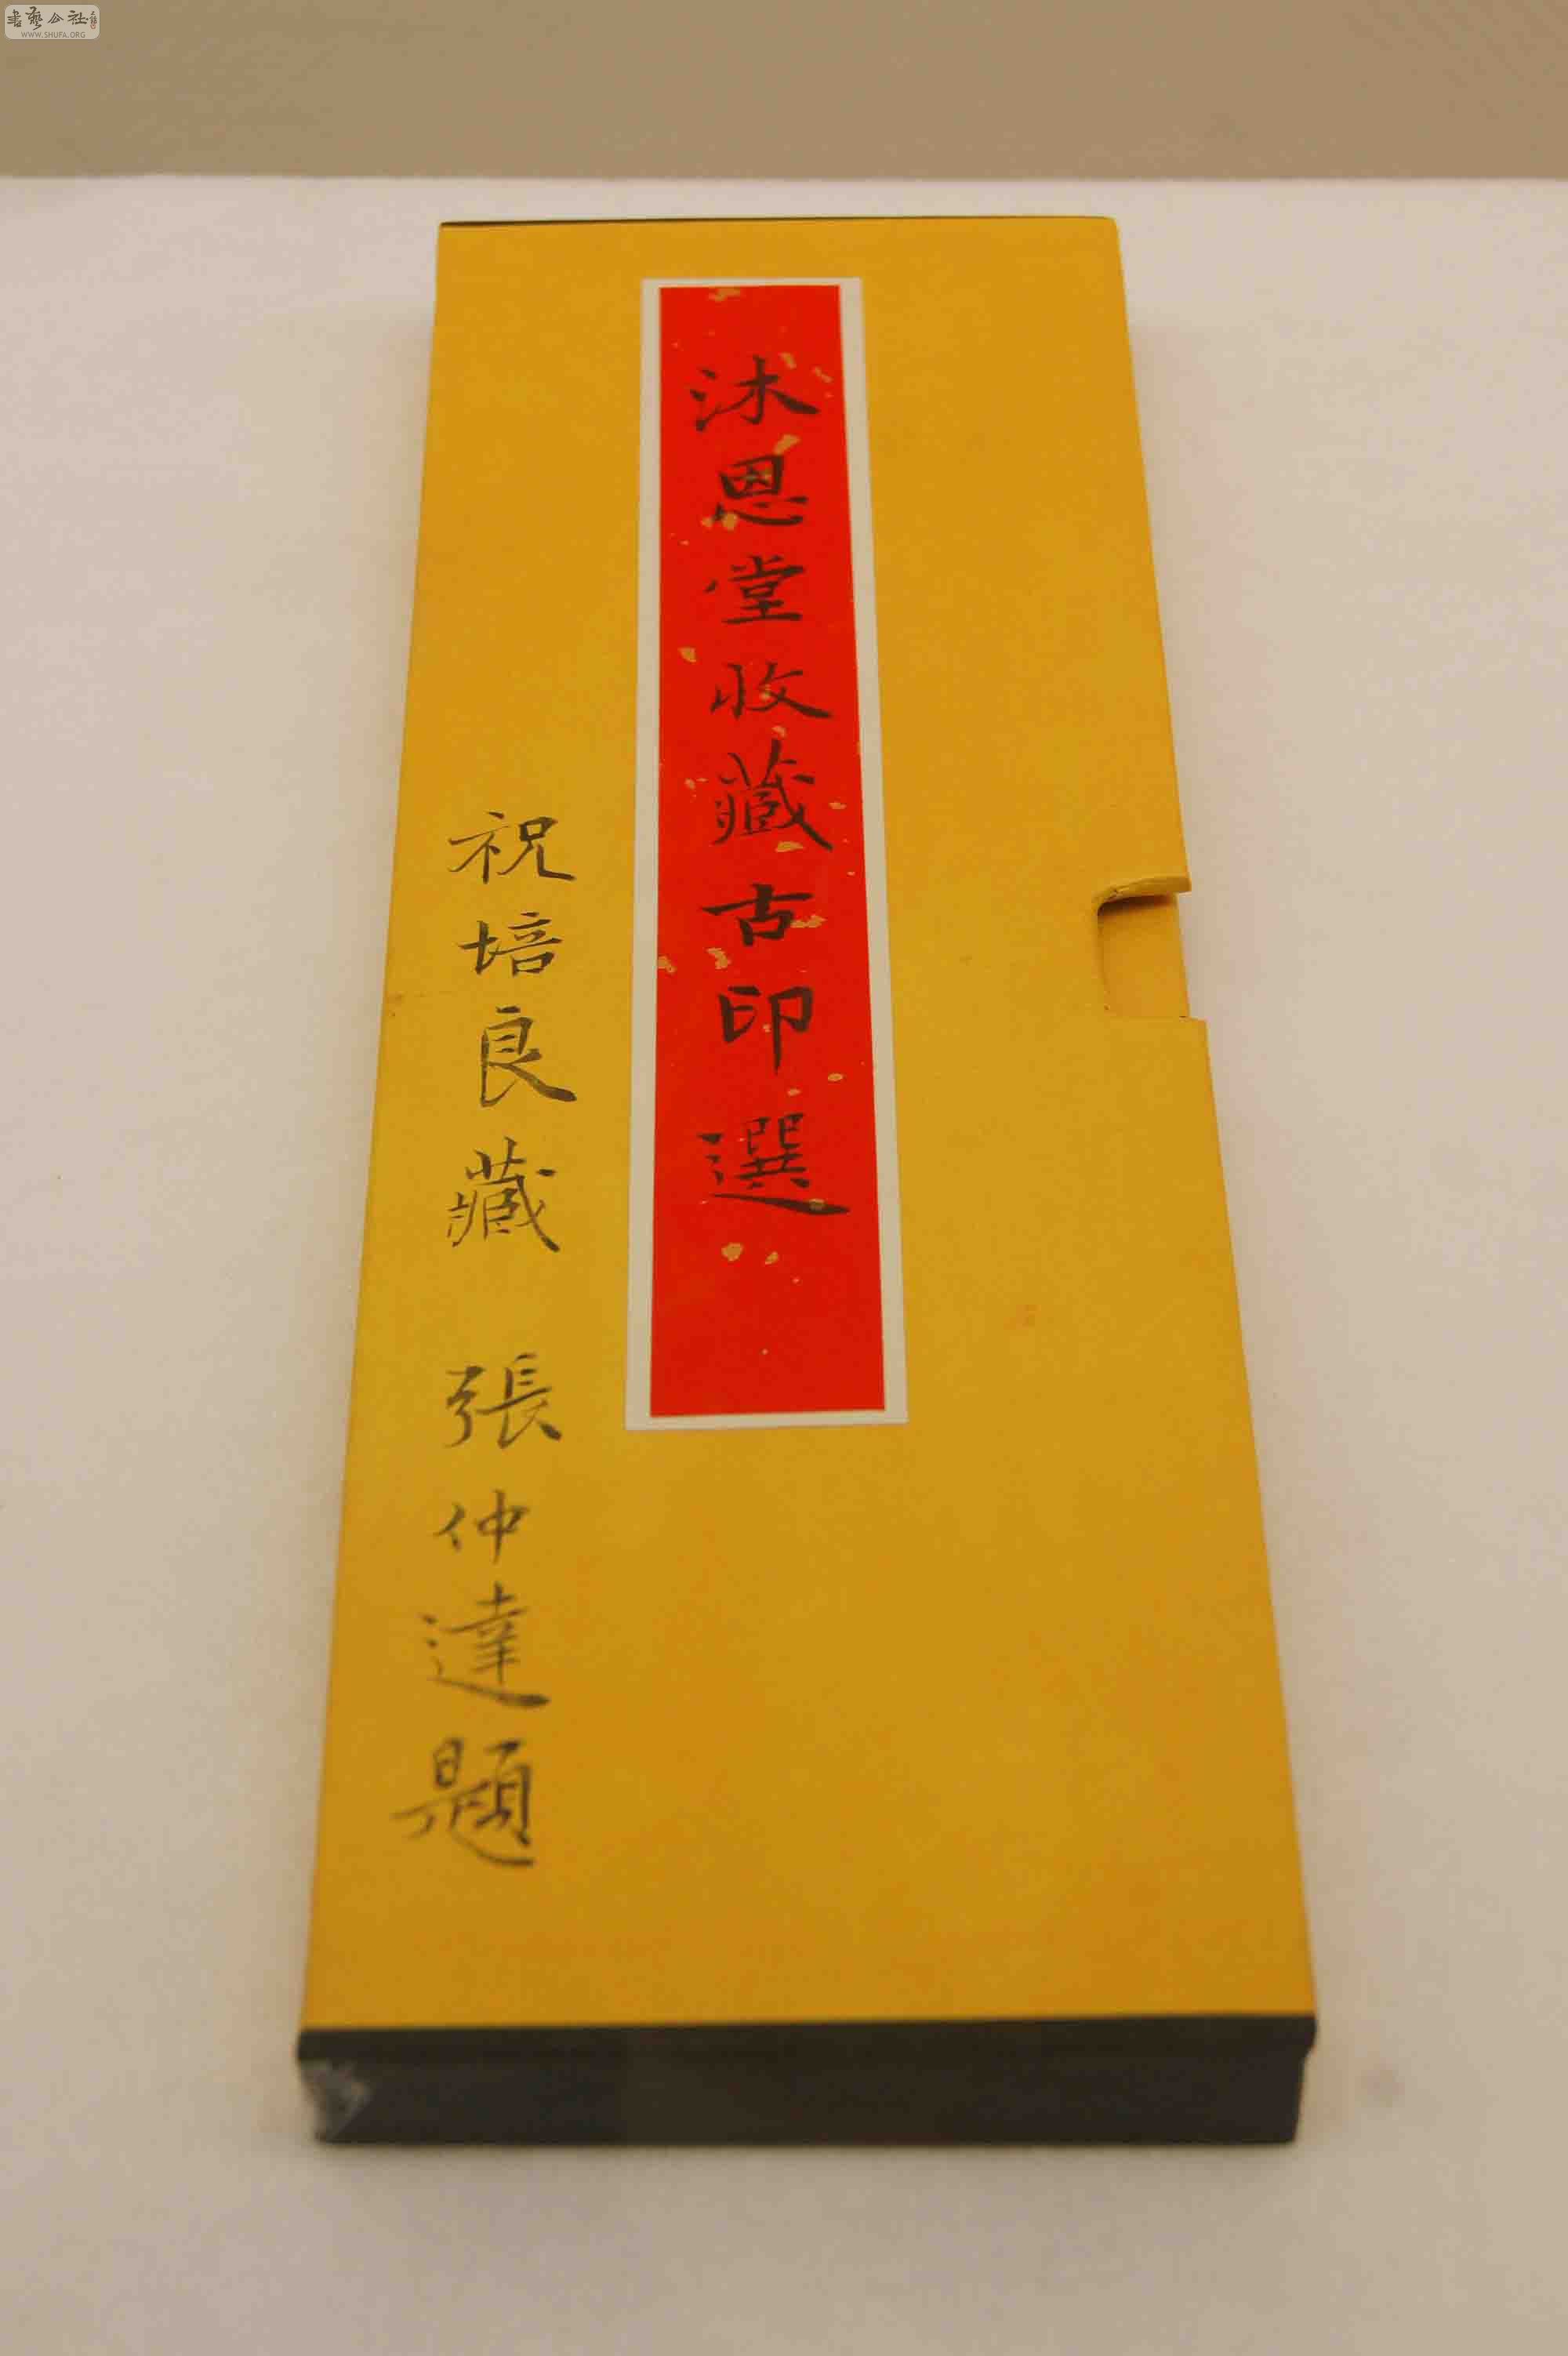 書藝公社
WWW.SHUFA.ORG
沐恩堂收藏古印選
祝培良藏 張仲達題